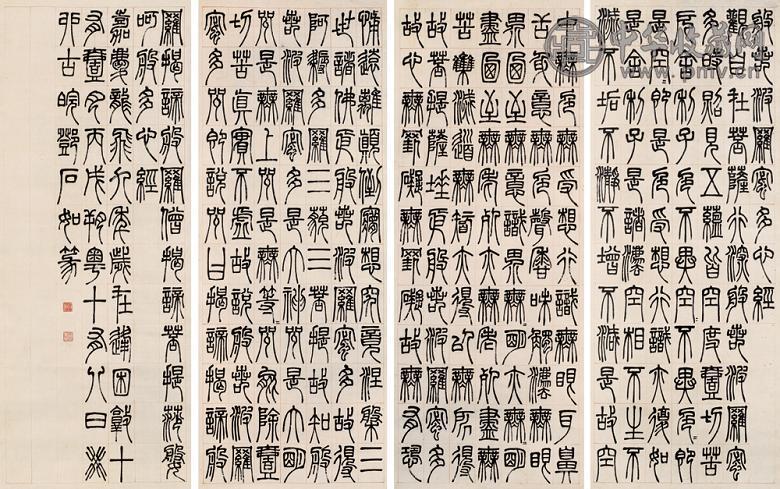 般若波羅蜜多心經
觀自在菩薩行深般若波羅蜜
多時照見五蘊皆空度一切苦
厄舍利子色不異空空不異色色即
是空空即是色受想行識亦復如
是舍利子是諸法空相不生不
滅不垢不淨不增不減是故空
中無色無受想行識無眼耳鼻
舌身意無色聲香味觸法無眼
界乃至無意識界無無明亦無無明
盡乃至無老死亦無老死盡無
苦集滅道無智亦得以無所得
故菩提薩埵依般若波羅蜜多
故心無罣礙無罣礙故無有恐
怖遠離顛倒夢想究竟涅槃三
世諸佛依般若波羅蜜多故得
阿耨多羅三藐三菩提故知般
若波羅蜜多是大神咒是大明
咒是無上咒是無等等咒能除一
切苦真實不虛故說般若波羅
蜜多咒即說咒曰揭諦揭諦般
羅揭諦般羅僧揭諦菩提薩婆
呵般多心經
嘉慶龍飛九年歲在逢困敦十
有一月丙戌朔粵十有八日癸
卯古皖鄧石如篆
中华收藏网